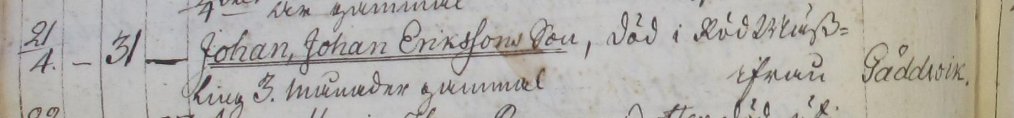 år gammal
21/4. – 31 – Johan, Johan Erikssons Son, död i Röd Mäss=
ling 3. månader gammal ifrån Gäddwik.